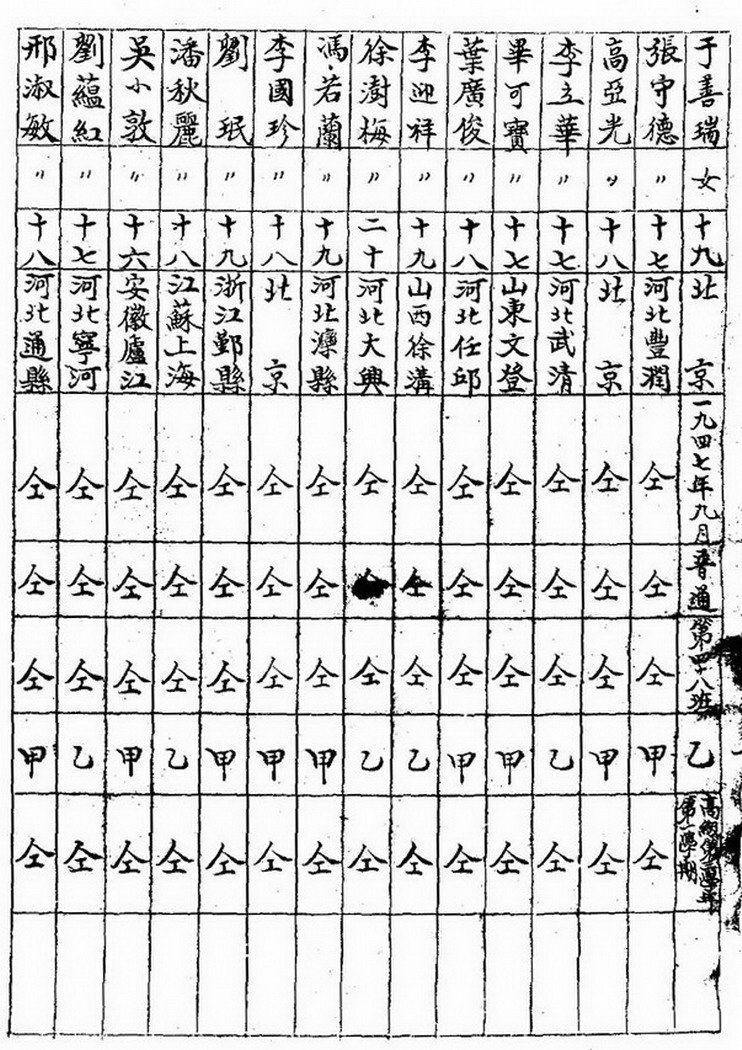 于善瑞 女 十九 北京 一九四七年九月 普通 第四十八班 乙 高級第三學年第二學期
張守德 〃 十七 河北豐潤 仝 仝 仝 甲 仝
高亞光 〃 十八 北京 仝 仝 仝 甲 仝
李立華 〃 十七 河北武清 仝 仝 仝 乙 仝
畢可寶 〃 十七 山東文登 仝 仝 仝 甲 仝
葉廣俊 〃 十八 河北任邱 仝 仝 仝 甲 仝
李迎祥 〃 十九 山西徐溝 仝 仝 仝 乙 仝
徐澍梅 〃 二十 河北大興 仝 仝 仝 乙 仝
馮若蘭 〃 十九 河北灤縣 仝 仝 仝 甲 仝
李國珍 〃 十八 北京 仝 仝 仝 甲 仝
劉珉 〃 十九 浙江鄞縣 仝 仝 仝 甲 仝
潘秋麗 〃 十八 江蘇上海 仝 仝 仝 乙 仝
吳小敦 〃 十六 安徽廬江 仝 仝 仝 甲 仝
劉蘊紅 〃 十七 河北寧河 仝 仝 仝 乙 仝
邢淑敏 〃 十八 河北通縣 仝 仝 仝 甲 仝